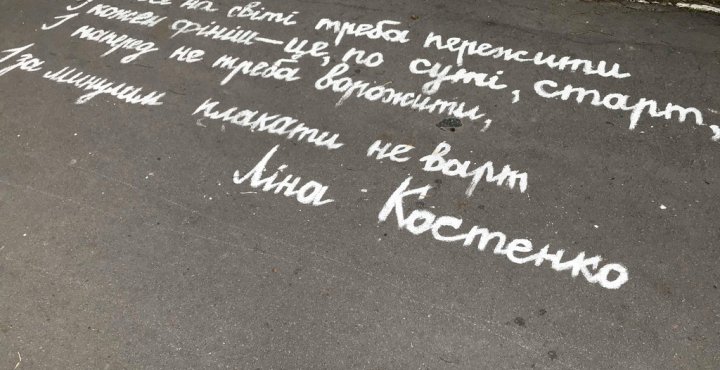 на світі треба пережити
І кожен фініш — це, по суті, старт,
І наперед не треба ворожити,
І за минулим плакати не варт
Ліна Костенко